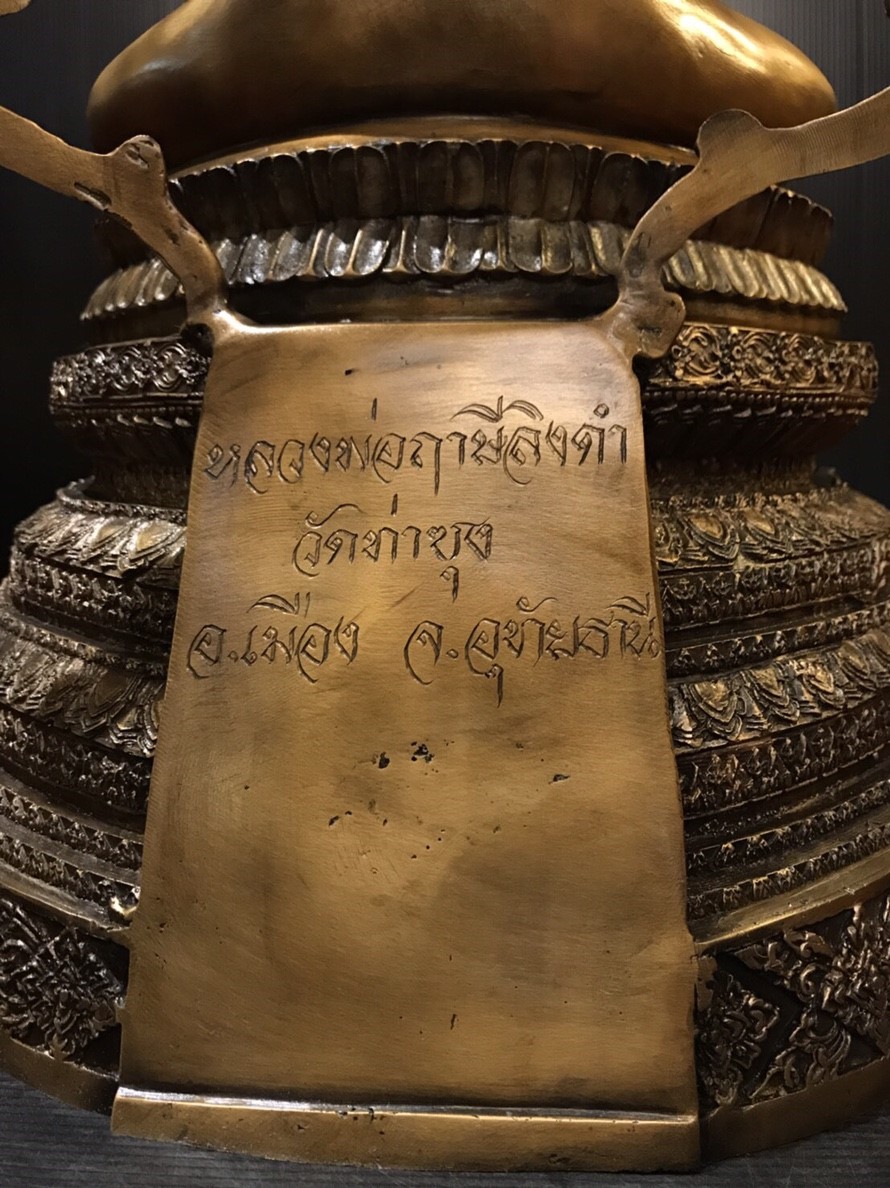 หลวงพ่อฤาษีลิงดำ
วัดท่าซุง
อ.เมือง จ.อุทัยธานี